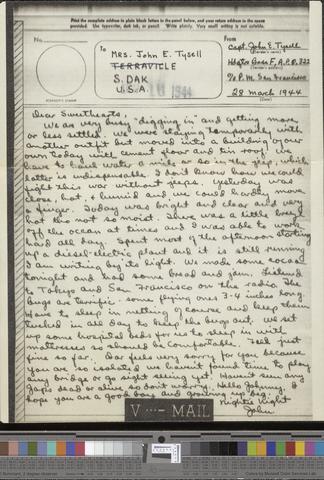 Print the complete address in plain block letters in the panel below, and your return address in the space
provided. Use typewriter, dark ink, or pencil. Write plainly. Very small writing is not suitable.
No.
To
MRS. John E. Tysell
TERRAVILLE
S. DAK
U.S.A.
1944
From
Capt. John E. Tysell
(Sender's name)
Hdqtrs Base F, A.P.O. 322
℅ P.M. San Francisco
28 march 1944
(Date)
(CENSOR'S STAMP)
Dear Sweethearts,
We are very busy "digging in" and getting more
or less settled. We were staying temporarily with
another outfit but moved into a building of our
own today with cement floor and tin roof. We
have to haul water a mile or so in the jeep, which
latter is indispensable. I don't know how we could
fight this war without jeeps. Yesterday was
close, hot, & humid and we could hardly move
a finger. Today was bright and clear and very
hot tho not so moist. There was a little breeze
off the ocean at times and I was able to work
hard all day. Spent most of the afternoon starting
up a diesel-electric plant and it is still running
I am writing by its light. We made some cocoa
tonight and had some bread and jam. Listened
to Tokyo and San Francisco on the radio. The
bugs are terrific - some flying ones 3-4 inches long.
Have to sleep in netting of course and keep them
tucked in all day to keep the bugs out. We set
up some hospital beds for us to sleep in with
mattresses so should be comfortable. Feel just
fine so far. Dar feels very sorry for you because
you are so isolated we havent found time to play
any bridge or go sight seeing yet. Havent seen any
Japs dead or alive so don't worry. Hello Johnny, I
hope you are a good boy and growing up big.
Nightie Night
John.
V···— MAIL